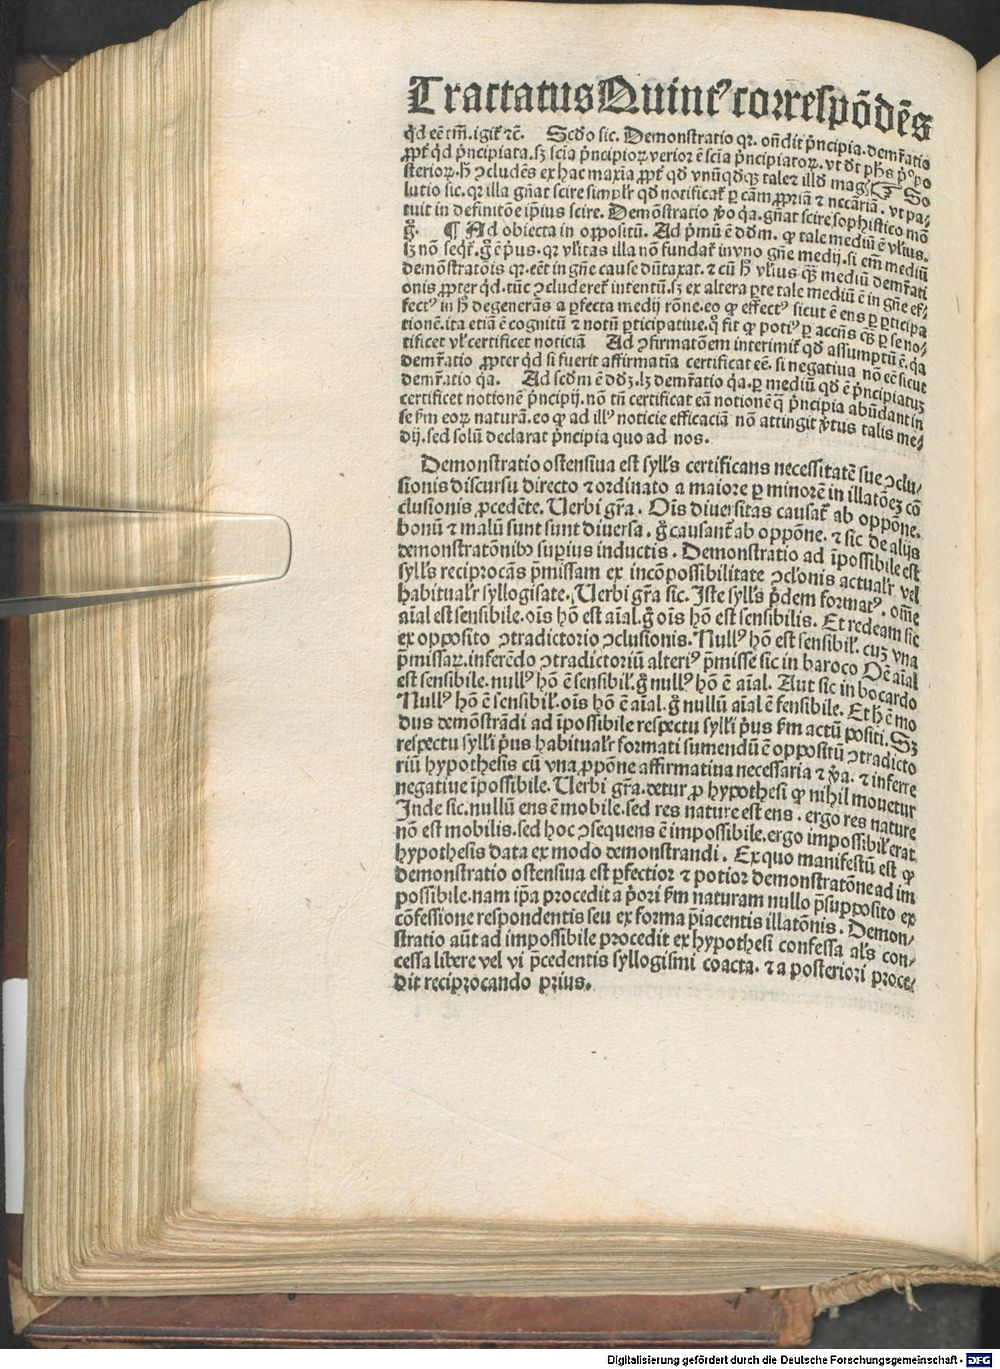 Tractatus Quintꝰ correspõdẽs
q̇d eẽ tm̃. igit̃ ⁊c̃. Scd̃o sic. Demonstratio qr. on̄dit p̃ncipia. dem̃ratio
ꝓpt̃ q̇d p̃ncipiata. sꝫ scĩa p̃ncipioꝝ verior ẽ scĩa p̃ncipiatoꝝ. vt d̃t pħs p̃ᵒ po
sterioꝝ. ħ ꝯcludẽs ex hac maxĩa ꝓpt̃ qd̃ vnũqd̃qꝫ tale ⁊ illd̃ mag̃ So
lutio sic. qr illa gñat scire simplr̃ qd̃ notificat̃ ꝑ cãm ꝓpriã ⁊ necãriã. vt pa⸗
tuit in definitõe ip̃ius scire. Demõstratio v̊o q̇a. gñat scire sophistico mõ
g̊. ¶ Ad obiecta in oppositũ. Ad p̃mũ ẽ dd̃m. ꝙ tale mediũ ẽ vl̃ius.
lꝫ nõ seqt̃. g̊ ẽ p̃us. qr vl̃itas illa nõ fundat̃ in vno gñe medij. si em̃ mediũ
demõstratõis qr. eẽt in gñe cause dũtaxat. ⁊ cũ ħ vl̃ius qꝫ̃ mediũ dem̃rati
onis ꝓpter q̇d. tũc ꝯcluderet̃ intentũ. sꝫ ex altera ꝑte tale mediũ ẽ in gñe ef⸗
fectꝰ in ħ degenerãs a ꝑfecta medij rõne. eo ꝙ effectꝰ sicut ẽ ens ꝑ ꝑticipa
tionẽ. ita etiã ẽ cognitũ ⁊ notũ ꝑticipatiue. q̊ fit ꝙ potiꝰ ꝑ accñs qꝫ̃ ꝑ se no⸗
tificet vl̃ certificet noticiã Ad ꝯfirmatõem interimit̃ qd̃ assumptũ ẽ. q̇a
dem̃ratio ꝓpter q̇d si fuerit affirmatĩa certificat eẽ. si negatiua nõ eẽ sicut
dem̃ratio q̇a. Ad scd̃m ẽ dd̃ꝫ. lꝫ dem̃ratio q̇a. ꝑ mediũ qd̃ ẽ p̃ncipiatuꝫ
certificet notionẽ p̃ncipij. nõ tñ certificat eã notionẽ q̃ p̃ncipia abũdant in
se fm̃ eoꝝ naturã. eo ꝙ ad illꝰ noticie efficaciã nõ attingit v̊tus talis me⸗
dij. sed solũ declarat p̃ncipia quo ad nos.
Demonstratio ostensiua est syll̃s certificans necessitatẽ sue ꝯclu⸗
sionis discursu directo ⁊ ordinato a maiore ꝑ minorẽ in illatõeꝫ cõ
clusionis ꝓcedẽte. Uerbi gr̃a. Oĩs diuersitas causat̃ ab oppõne.
bonũ ⁊ malũ sunt sunt diuersa. g̊ causant̃ ab oppõne. ⁊ sic de alijs
demonstratõnibꝰ supius inductis. Demonstratio ad ĩpossibile est
syll̃s reciprocãs p̃missam ex incõpossibilitate ꝯcl̃onis actualr̃ vel
habitualr̃ syllogisate. Uerbi gr̃a sic. Iste syll̃s p̃dem formatꝰ. om̃e
aĩal est sensibile. oĩs hõ est aĩal. g̊ oĩs hõ est sensibilis. Et redeam sic
ex opposito ꝯtradictorio ꝯclusionis. Nullꝰ hõ est sensibil̃. cuꝫ vna
p̃missaꝝ. inferẽdo ꝯtradictoriũ alteriꝰ p̃misse sic in baroco Oẽ aĩal
est sensibile. nullꝰ hõ ẽ sensibil̃. g̊ nullꝰ hõ ẽ aĩal. Aut sic in bocardo
Nullꝰ hõ ẽ sensibil̃. oĩs hõ ẽ aĩal. g̊ nullũ aĩal ẽ sensibile. Et ħ ẽ mo
dus demõstrãdi ad ĩpossibile respectu syll̃i p̃us fm̃ actũ positi. Sꝫ
respectu syll̃i p̃us habitualr̃ formati sumendũ ẽ oppositũ ꝯtradicto
riũ hypothesis cũ vna ꝓpõne affirmatiua necessaria ⁊ v̊a. ⁊ inferre
negatiue ĩpossibile. Uerbi gr̃a. detur ꝓ hypothesi ꝙ nihil mouetur
Inde sic. nullũ ens ẽ mobile. sed res nature est ens. ergo res nature
nõ est mobilis. sed hoc ꝯsequens ẽ impossibile. ergo impossibil̃ erat
hypothesis data ex modo demonstrandi. Ex quo manifestũ est ꝙ
demonstratio ostensiua est ꝑfectior ⁊ potior demonstratõne ad im
possibile. nam ip̃a procedit a p̃ori fm̃ naturam nullo p̃supposito ex
cõfessione respondentis seu ex forma p̃iacentis illatõnis. Demon⸗
stratio aũt ad impossibile procedit ex hypothesi confessa al̃s con⸗
cessa libere vel vi p̃cedentis syllogismi coacta. ⁊ a posteriori proce⸗
dit reciprocando prius.
Digitalisierung gefördert durch die Deutsche Forschungsgemeinschaft - DFG